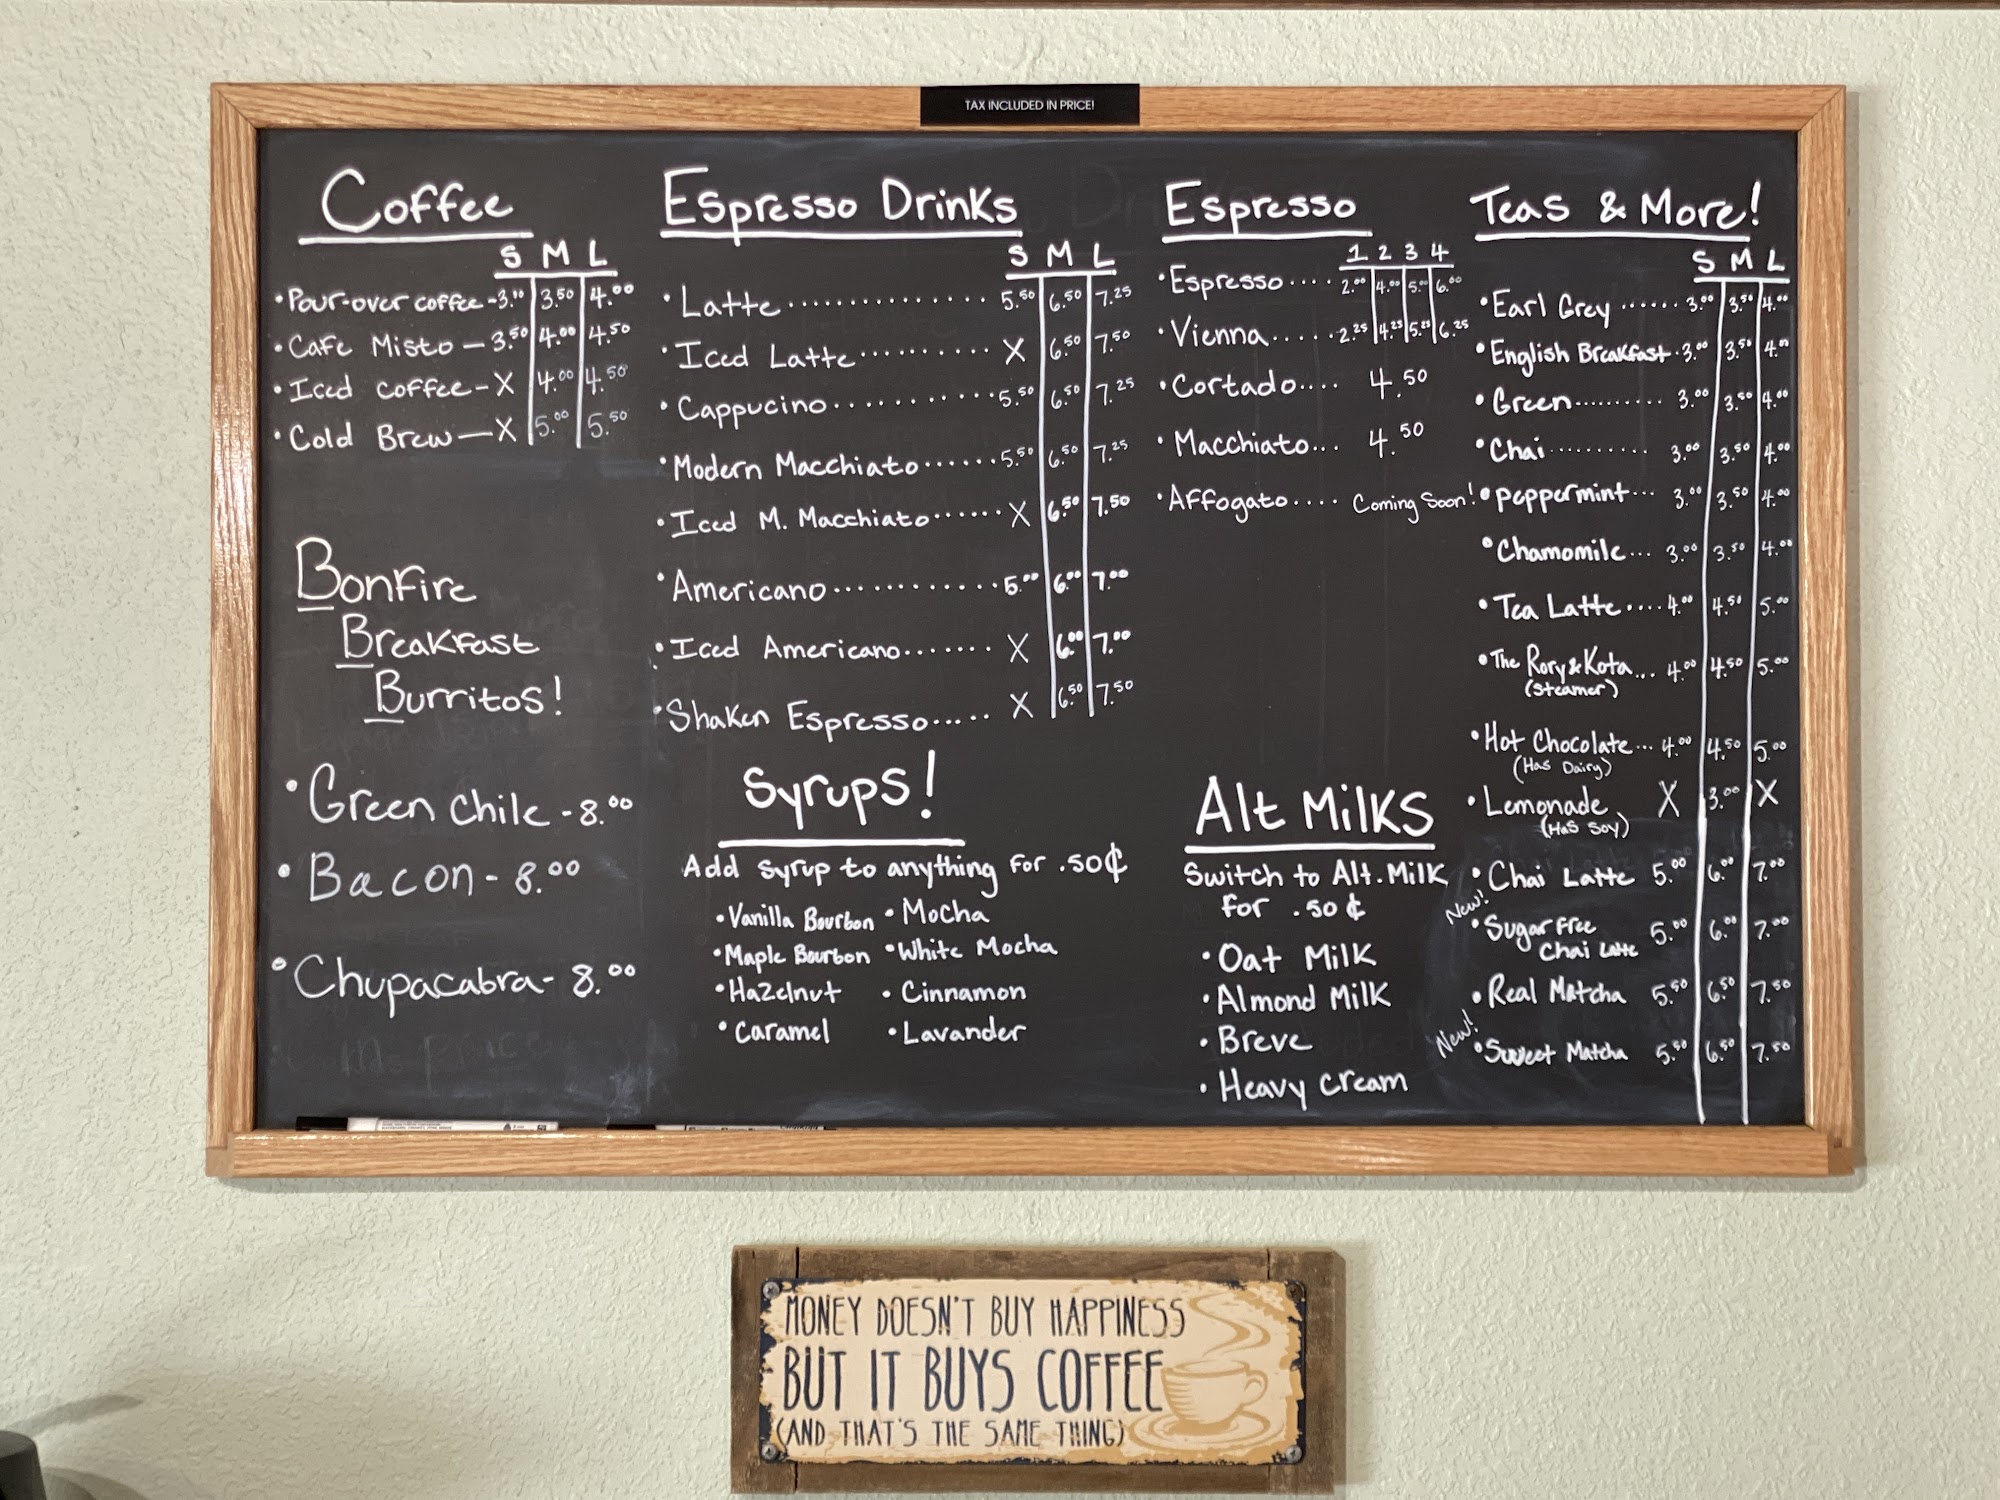 TAX INCLUDED IN PRICE!
Coffee
S M L
• Pour-over coffee - 3.00 3.50 4.00
• Cafe Misto — 3.50 4.00 4.50
• Iced coffee - X 4.00 4.50
• Cold Brew — X 5.00 5.50
Bonfire
Breakfast
Burritos!
• Green Chile - 8.00
• Bacon - 8.00
• Chupacabra - 8.00
Espresso Drinks
S M L
• Latte 5.50 6.50 7.25
• Iced Latte X 6.50 7.50
• Cappucino 5.50 6.50 7.25
• Modern Macchiato 5.50 6.50 7.25
• Iced M. Macchiato X 6.50 7.50
• Americano 5.00 6.00 7.00
• Iced Americano X 6.00 7.00
• Shaken Espresso X 6.50 7.50
Syrups!
Add syrup to anything for .50¢
• Vanilla Bourbon • Mocha
• Maple Bourbon • White Mocha
• Hazelnut • Cinnamon
• Caramel • Lavander
Espresso
1 2 3 4
• Espresso 2.00 4.00 5.00 6.00
• Vienna 2.25 4.25 5.25 6.25
• Cortado 4.50
• Macchiato 4.50
• Affogato Coming Soon!
Alt Milks
Switch to Alt. Milk
for .50¢
• Oat Milk
• Almond Milk
• Breve
• Heavy Cream
Teas & More!
S M L
• Earl Grey 3.00 3.50 4.00
• English Breakfast 3.00 3.50 4.00
• Green 3.00 3.50 4.00
• Chai 3.00 3.50 4.00
• Peppermint 3.00 3.50 4.00
• Chamomile 3.00 3.50 4.00
• Tea Latte 4.00 4.50 5.00
• The Rory & Kota 4.00 4.50 5.00
(Steamer)
• Hot Chocolate 4.00 4.50 5.00
(Has Dairy)
• Lemonade X 3.00 X
(Has Soy)
• Chai Latte 5.00 6.00 7.00
New!
• Sugar Free 5.00 6.00 7.00
Chai Latte
• Real Matcha 5.50 6.50 7.50
New!
• Sweet Matcha 5.50 6.50 7.50
MONEY DOESN'T BUY HAPPINESS
BUT IT BUYS COFFEE
(AND THAT'S THE SAME THING)